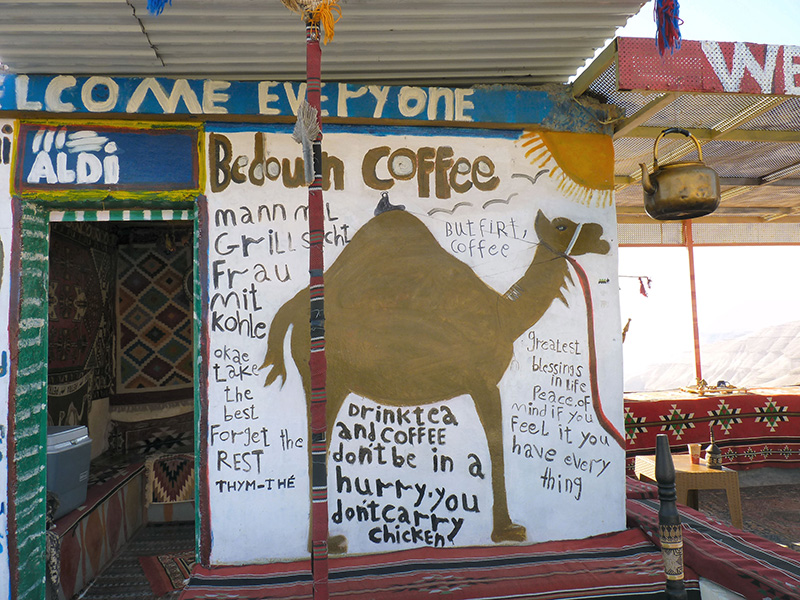 WELCOME EVERYONE
WE
ALDI
Bedouin coffee
mann mit
Grill sucht
Frau
mit
kohle
okae
take
the
best
Forget the
REST
THYM-THÉ
BUT FIRT,
COFFEE
greatest
blessings
in life
Peace of
mind if you
Feel it you
have every
thing
DRINK TEA
and COFFEE
don't be in a
hurry. you
don't carry
chicken!